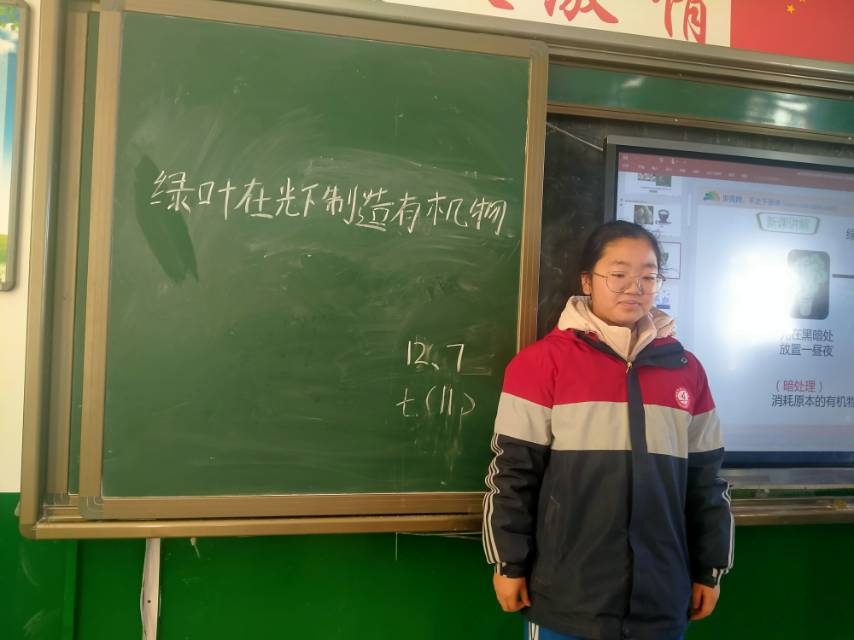 情
绿叶在光下制造有机物
12、7
七(11)
新课讲解
在黑暗处
放置一昼夜
（暗处理）
消耗原本的有机物